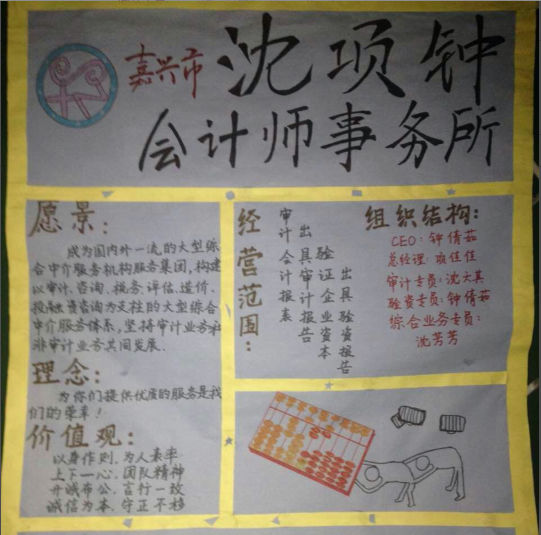 嘉兴市
沈项钟
会计师事务所
愿景:
成为国内外一流的大型综
合中介服务机构服务集团,构建
以审计、咨询、税务、评估、造价、
投融资咨询为支柱的大型综合
中介服务体系,坚持审计业务和
非审计业务共同发展.
理念:
为你们提供优质的服务是我
们的荣幸!
价值观:
以身作则、为人表率
上下一心、团队精神
开诚布公、言行一致
诚信为本、守正不移
经营范围:
审计会计报表
出具审计报告
验证企业资本
出具验资报告
组织结构:
CEO:钟倩茹
总经理:项佳佳
审计专员:沈天其
验资专员:钟倩茹
综合业务专员:
沈芳芳